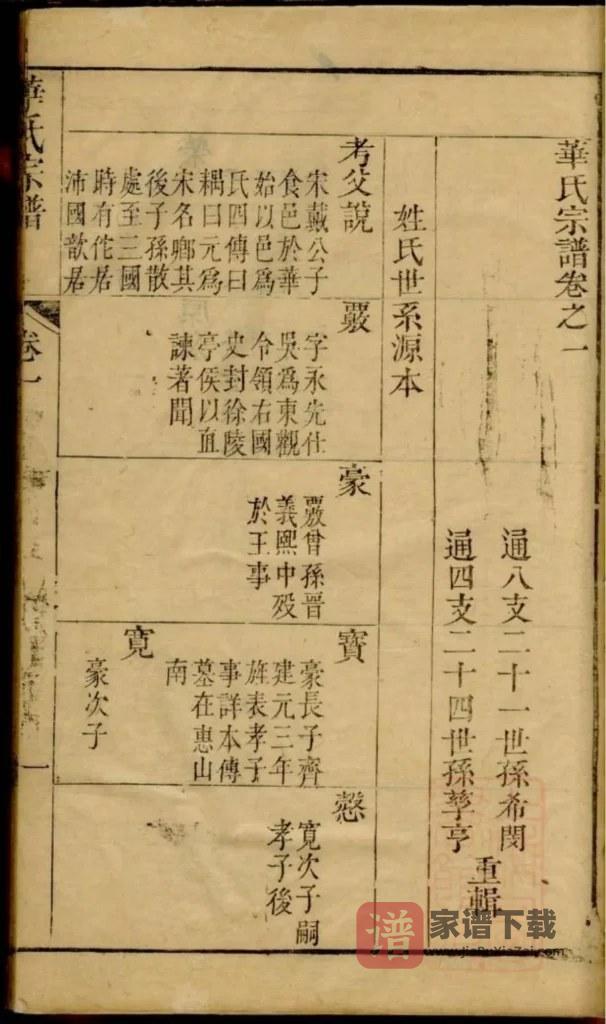 華氏宗譜卷之一
通八支二十一世孫希閔
通四支二十四世孫孳亨
重輯
姓氏世系源本
考父說
宋戴公子
食邑於華
始以邑爲
氏四傳曰
耦曰元爲
宋名卿其
後子孫散
處至三國
時有佗居
沛國歆居
覈
字永先仕
吳爲東觀
令領右國
史封徐陵
亭侯以直
諫著聞
豪
覈曾孫晉
義熙中歿
於王事
寶
豪長子齊
建元三年
旌表孝子
事詳本傳
墓在惠山
南
寬
豪次子
愨
寬次子嗣
孝子後
華氏宗譜
卷一
一
谱
家谱下载
www.jiaPuXiaZai.com